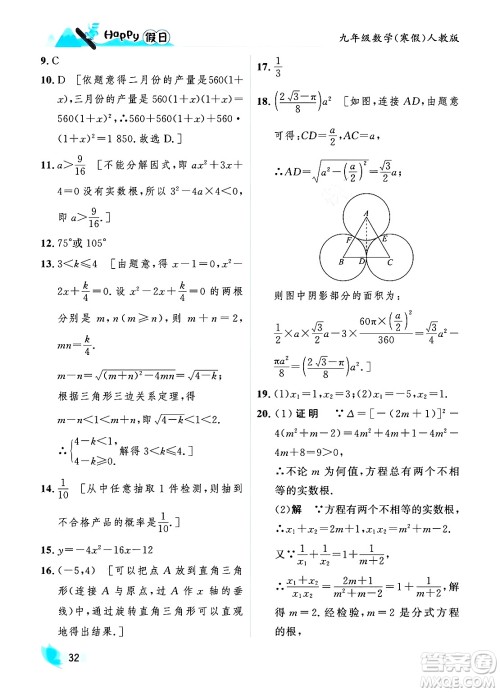 Happy 假日
九年级数学(寒假)人教版
9. C
10. D [依题意得二月份的产量是 560(1+
x),三月份的产量是 560(1+x)(1+x)=
560(1+x)²,∴560+560(1+x)+560·
(1+x)²=1 850. 故选 D.]
11. a>9/16 [不能分解因式,即 ax²+3x+
4=0 没有实数根,所以 3²-4·a×4<0,
即 a>9/16.]
12. 75°或 105°
13. 3<k≤4 [由题意,得 x-1=0,x²-
2x+k/4=0. 设 x²-2x+k/4=0 的两根
分别是 m,n(m≥n). 则 m+n=2,
mn=k/4.
m-n=√((m+n)²-4mn)=√(4-k).
根据三角形三边关系定理,得
m-n<1<m+n,即√(4-k)<1<2.
∴{√(4-k)<1, 4-k≥0. 解得 3<k≤4.]
14. 1/10 [从中任意抽取 1 件检测,则抽到
不合格产品的概率是 1/10.]
15. y=-4x²-16x-12
16. (-5,4) [可以把点 A 放到直角三角形
(连接点 A 及点 A 作 x 轴的垂线
段)中,通过旋转直角三角形可以直观
地得出结果.]
32
17. 1/3
18. ((2√3-π)/8)a² [如图,连接 AD,由题意
可得:CD=a/2,AD⊥BC,AC=a,
∴AD=√(a²-(a/2)²)=(√3/2)a,
A
F
E
B
D
C
则图中阴影部分的面积为:
1/2×a×(√3/2)a-3×(60π×(a/2)²)/360=(√3/4)a²-
πa²/8=((2√3-π)/8)a².]
19. (1)x₁=1,x₂=3; (2)x₁=x₂=2.
20. (1) 证明 ∵Δ=[-(2m+1)]²-
4(m²+m-2)=4m²+4m+1-
4m²-4m+8=9>0,
∴不论 m 为何值,方程总有两个不相
等的实数根.
(2)解 ∵x₁,x₂是方程的两个不相等
的实数根,∴x₁+x₂=2m+1,
x₁·x₂=m²+m-2,
又∵1/x₁+1/x₂=1+1/(m+2),
∴(x₁+x₂)/(x₁x₂)=(2m+1)/(m²+m-2)=1+1/(m+2),
解得 m=±2. 经检验,m=2 是分式方
程的根,